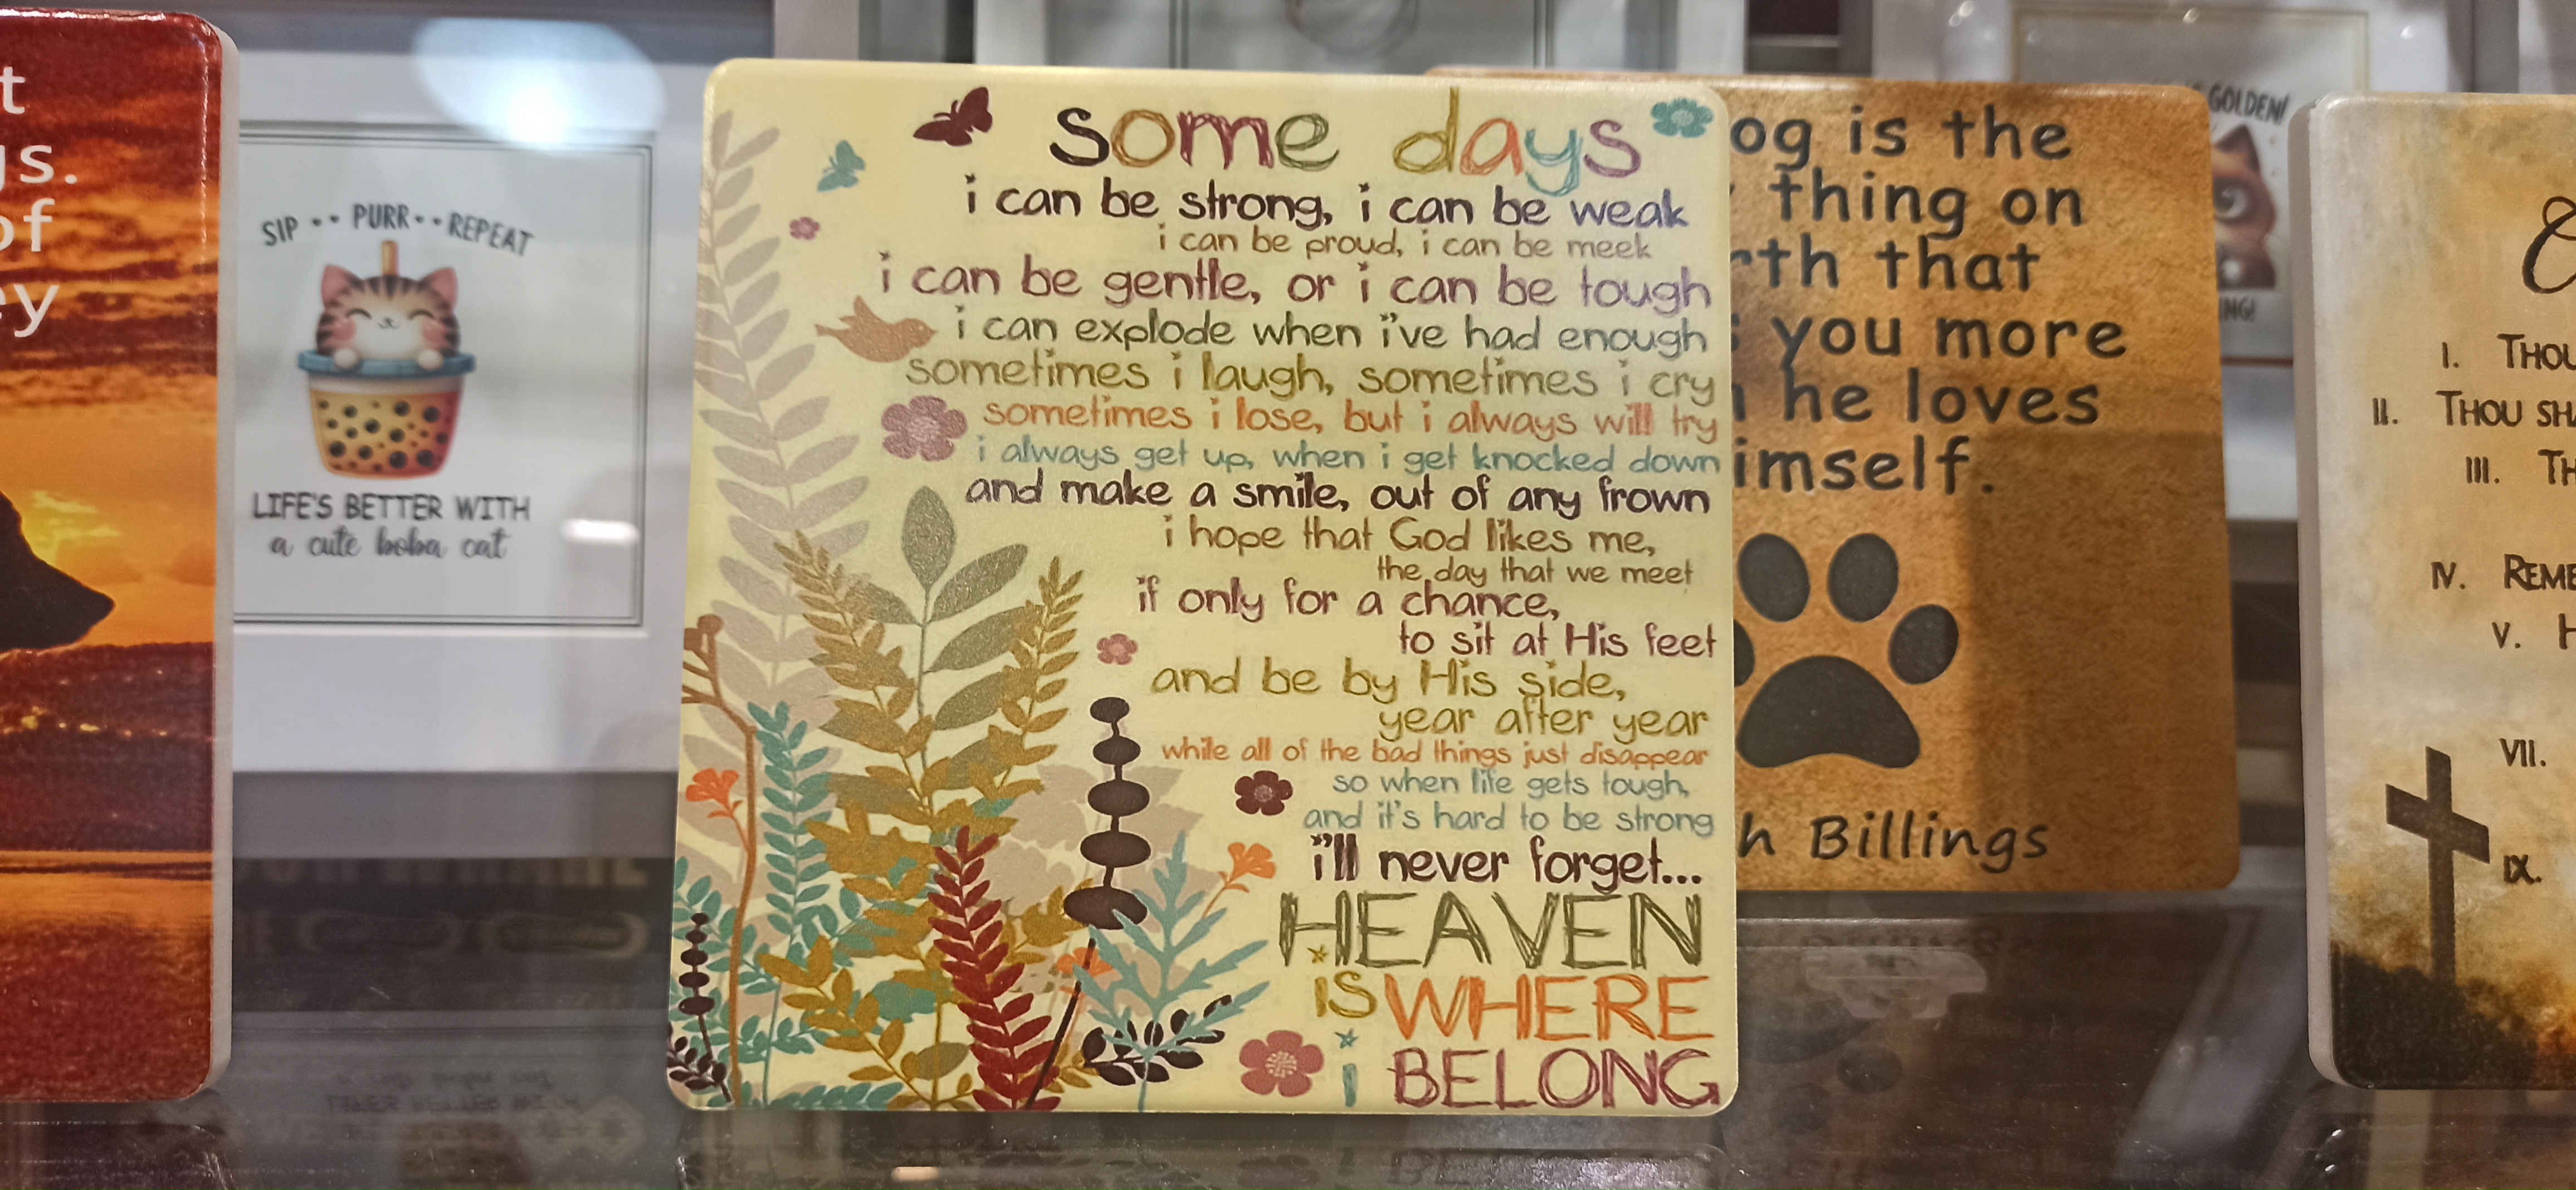 t
gs.
of
ey
SIP •• PURR •• REPEAT
LIFE'S BETTER WITH
a cute boba cat
some days
i can be strong, i can be weak
i can be proud, i can be meek
i can be gentle, or i can be tough
i can explode when i've had enough
sometimes i laugh, sometimes i cry
sometimes i lose, but i always will try
i always get up, when i get knocked down
and make a smile, out of any frown
i hope that God likes me,
the day that we meet
if only for a chance,
to sit at His feet
and be by His side,
year after year
while all of the bad things just disappear
so when life gets tough,
and it's hard to be strong
i'll never forget...
HEAVEN
is WHERE
i BELONG
og is the
thing on
rth that
you more
he loves
imself.
h Billings
GOLDEN!
NG!
I. THOU
II. THOU SHA
III. TH
IV. REME
V. H
VII.
IX.